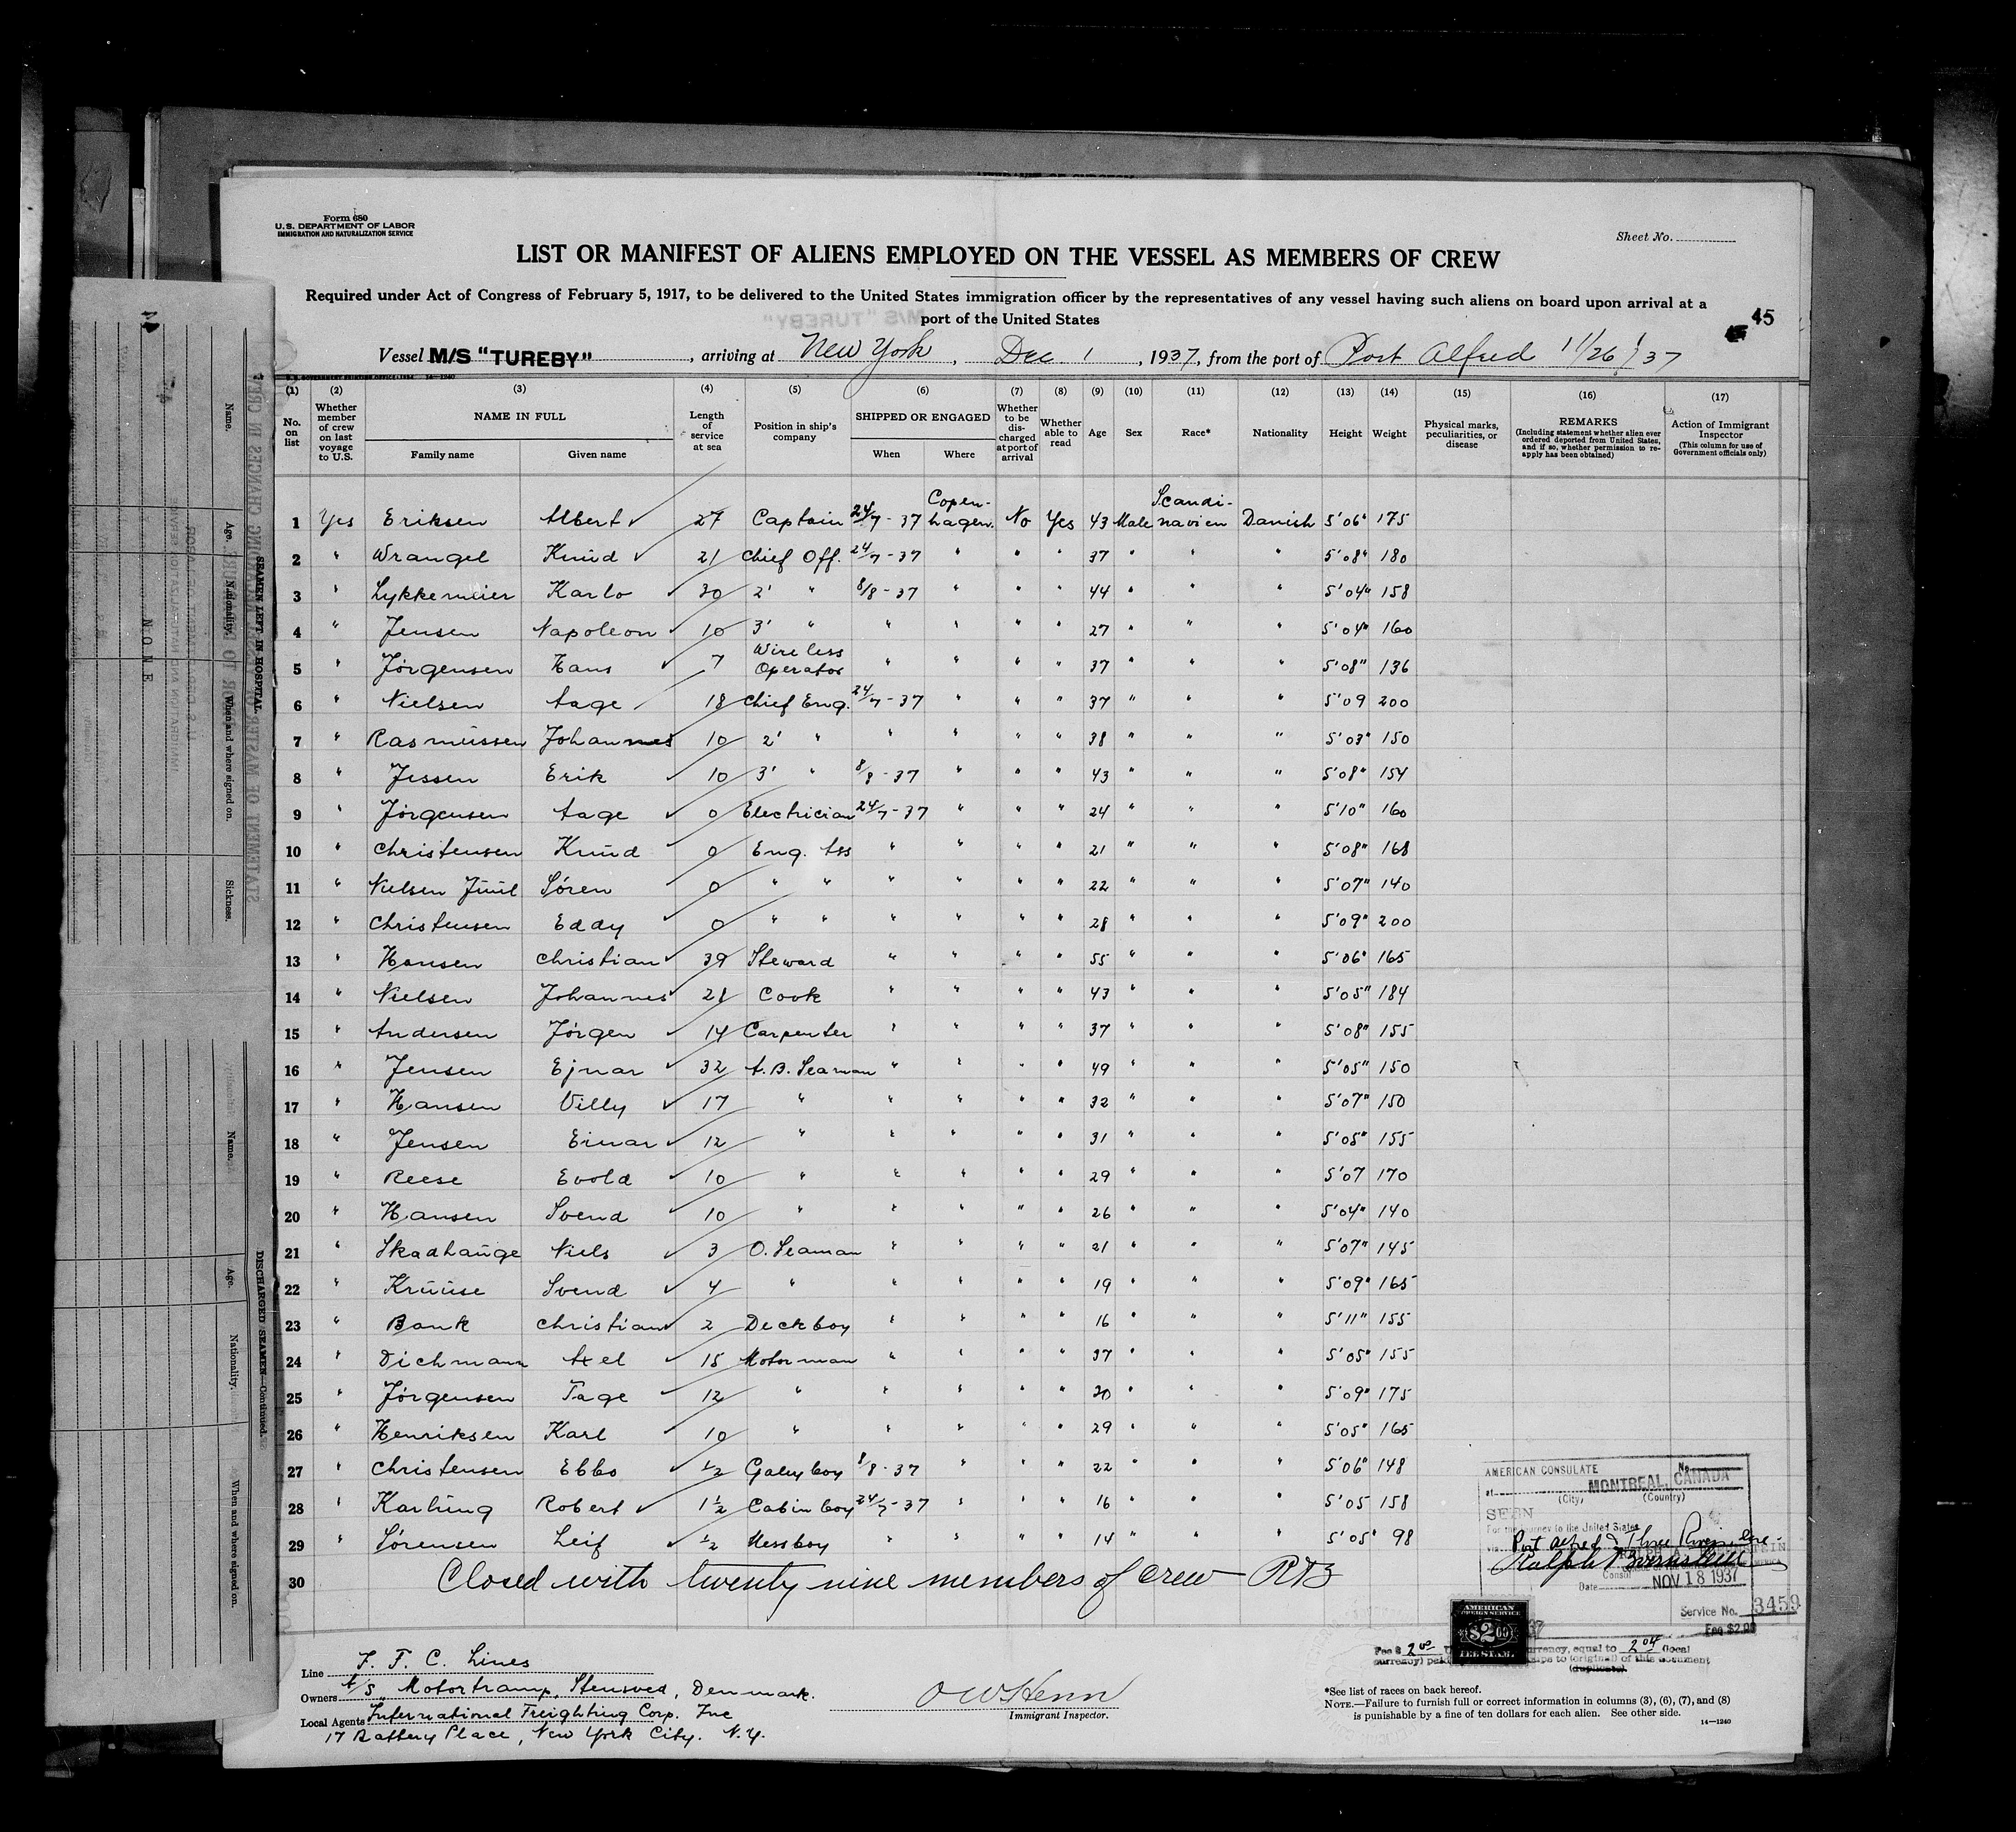 Form 680
U.S. DEPARTMENT OF LABOR
IMMIGRATION AND NATURALIZATION SERVICE
Sheet No.
LIST OR MANIFEST OF ALIENS EMPLOYED ON THE VESSEL AS MEMBERS OF CREW
Required under Act of Congress of February 5, 1917, to be delivered to the United States immigration officer by the representatives of any vessel having such aliens on board upon arrival at a
port of the United States
45
Vessel M/S "TUREBY", arriving at New York, Dec 1, 1937, from the port of Port Alfred 11/26/37
(1) (2) (3) (4) (5) (6) (7) (8) (9) (10) (11) (12) (13) (14) (15) (16) (17)
No. on list
Whether member of crew on last voyage to U.S.
NAME IN FULL
Family name
Given name
Length of service at sea
Position in ship's company
SHIPPED OR ENGAGED
When
Where
Whether to be discharged at port of arrival
Whether able to read
Age
Sex
Race*
Nationality
Height
Weight
Physical marks, peculiarities, or disease
REMARKS
(Including statement whether alien ever ordered deported from United States, and if so, whether permission to reapply has been obtained)
Action of Immigrant Inspector
(This column for use of Government officials only)
1 Yes Eriksen Albert 27 Captain 24/7-37 Copen-hagen. No Yes 43 Male Scandi-navien Danish 5'06" 175
2 " Wrangel Knud 21 Chief Off. 24/7-37 " " " 37 " " " 5'08" 180
3 " Lykkemeier Karlo 30 2' " 8/8-37 " " " 44 " " " 5'04" 158
4 " Jensen Napoleon 10 3' " " " " " 27 " " " 5'04" 160
5 " Jörgensen Hans 7 Wireless Operator " " " " 37 " " " 5'08" 136
6 " Nielsen Aage 18 Chief Eng. 24/7-37 " " " 37 " " " 5'09 200
7 " Rasmussen Johannes 10 2' " " " " " 38 " " " 5'03" 150
8 " Jessen Erik 10 3' " 8/8-37 " " " 43 " " " 5'08" 154
9 " Jörgensen Aage 0 Electrician 24/7-37 " " " 24 " " " 5'10" 160
10 " Christensen Knud 0 Eng. Ass " " " " 21 " " " 5'08" 168
11 " Nielsen Juul Sören 0 " " " " " " 22 " " " 5'07" 140
12 " Christensen Eddy 0 " " " " " " 28 " " " 5'09" 200
13 " Hansen Christian 39 Steward " " " " 55 " " " 5'06" 165
14 " Nielsen Johannes 21 Cook " " " " 43 " " " 5'05" 184
15 " Andersen Jörgen 14 Carpenter " " " " 37 " " " 5'08" 155
16 " Jensen Ejnar 32 A.B. Seaman " " " " 49 " " " 5'05" 150
17 " Hansen Villy 17 " " " " " 32 " " " 5'07" 150
18 " Jensen Einar 12 " " " " " 31 " " " 5'05" 155
19 " Reese Evold 10 " " " " " 29 " " " 5'07 170
20 " Hansen Svend 10 " " " " " 26 " " " 5'04" 140
21 " Skadhauge Niels 3 O. Seaman " " " " 21 " " " 5'07" 145
22 " Kruuse Svend 4 " " " " " 19 " " " 5'09" 165
23 " Bank Christian 2 Deckboy " " " " 16 " " " 5'11" 155
24 " Dichmann Axel 15 Motorman " " " " 37 " " " 5'05" 155
25 " Jörgensen Tage 12 " " " " " 30 " " " 5'09" 175
26 " Henriksen Karl 10 " " " " " 29 " " " 5'05" 165
27 " Christensen Ebbo 1/2 Galeyboy 8/8-37 " " " 22 " " " 5'06" 148
28 " Karling Robert 1 1/2 Cabinboy 24/7-37 " " " 16 " " " 5'05 158
29 " Sörensen Leif 1/2 Messboy " " " " 14 " " " 5'05" 98
30 Closed with twenty nine members of crew RTB
AMERICAN CONSULATE No.
at MONTREAL, CANADA
(City) (Country)
SEEN
For the journey to the United States
via Port Alfred & Three Rivers
Consul
Date NOV 18 1937
Service No. 3459
Fee $2.00
AMERICAN
FOREIGN SERVICE
$2.00
FEE STAMP
Line F. F. C. Lines
Owners A/S "Motortramp, Stensved, Denmark.
Local Agents International Freighting Corp. Inc
17 Battery Place, New York City. N.Y.
O W Henn
Immigrant Inspector.
*See list of races on back hereof.
NOTE.—Failure to furnish full or correct information in columns (3), (6), (7), and (8)
is punishable by a fine of ten dollars for each alien. See other side.
14—1240
SEAMEN LEFT IN HOSPITAL.
Name.
Age.
Nationality.
When and where signed on.
Sickness.
NONE
DISCHARGED SEAMEN—Continued.
Name.
Age.
Nationality.
When and where signed on.